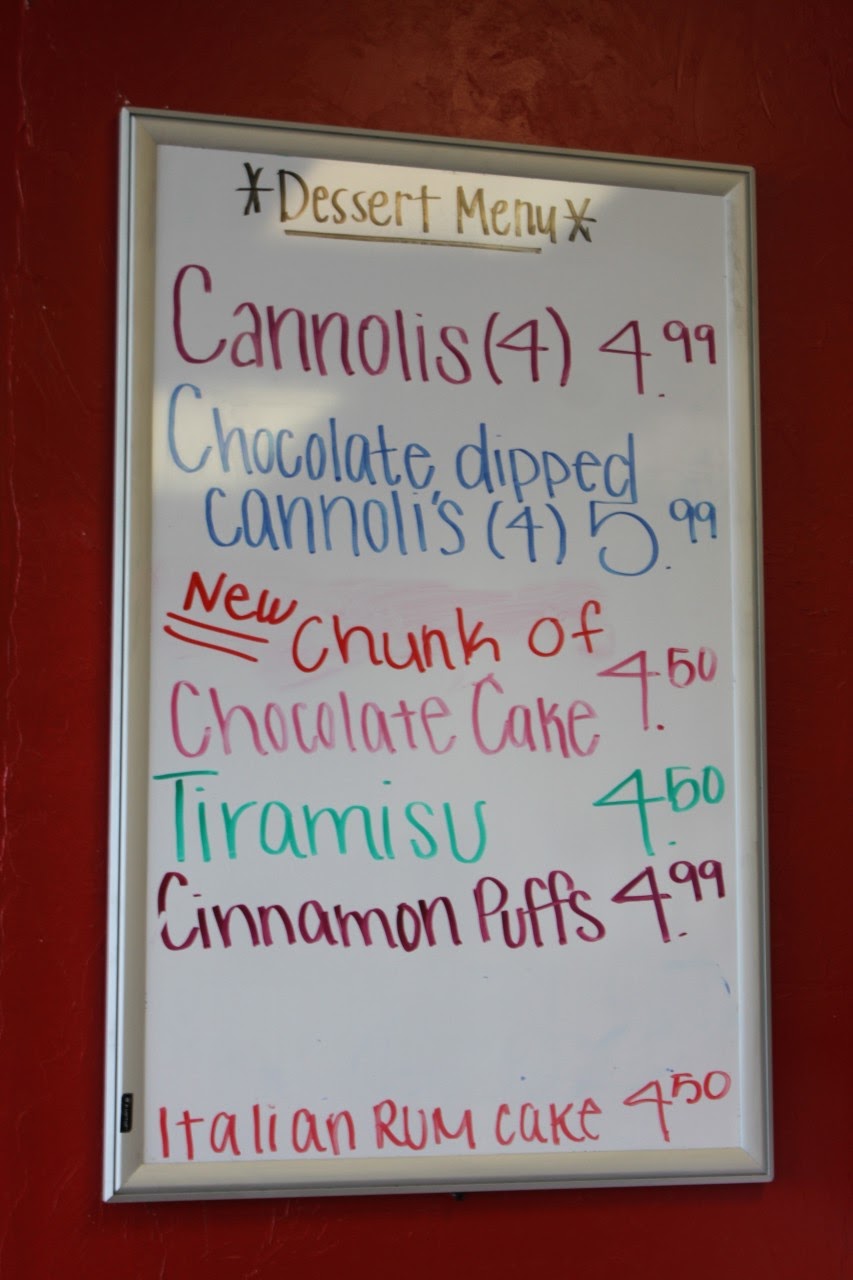 *Dessert Menu*
Cannolis (4) 4.99
Chocolate dipped
cannoli's (4) 5.99
New Chunk of
Chocolate Cake 4.50
Tiramisu 4.50
Cinnamon Puffs 4.99
Italian RUM cake 4.50